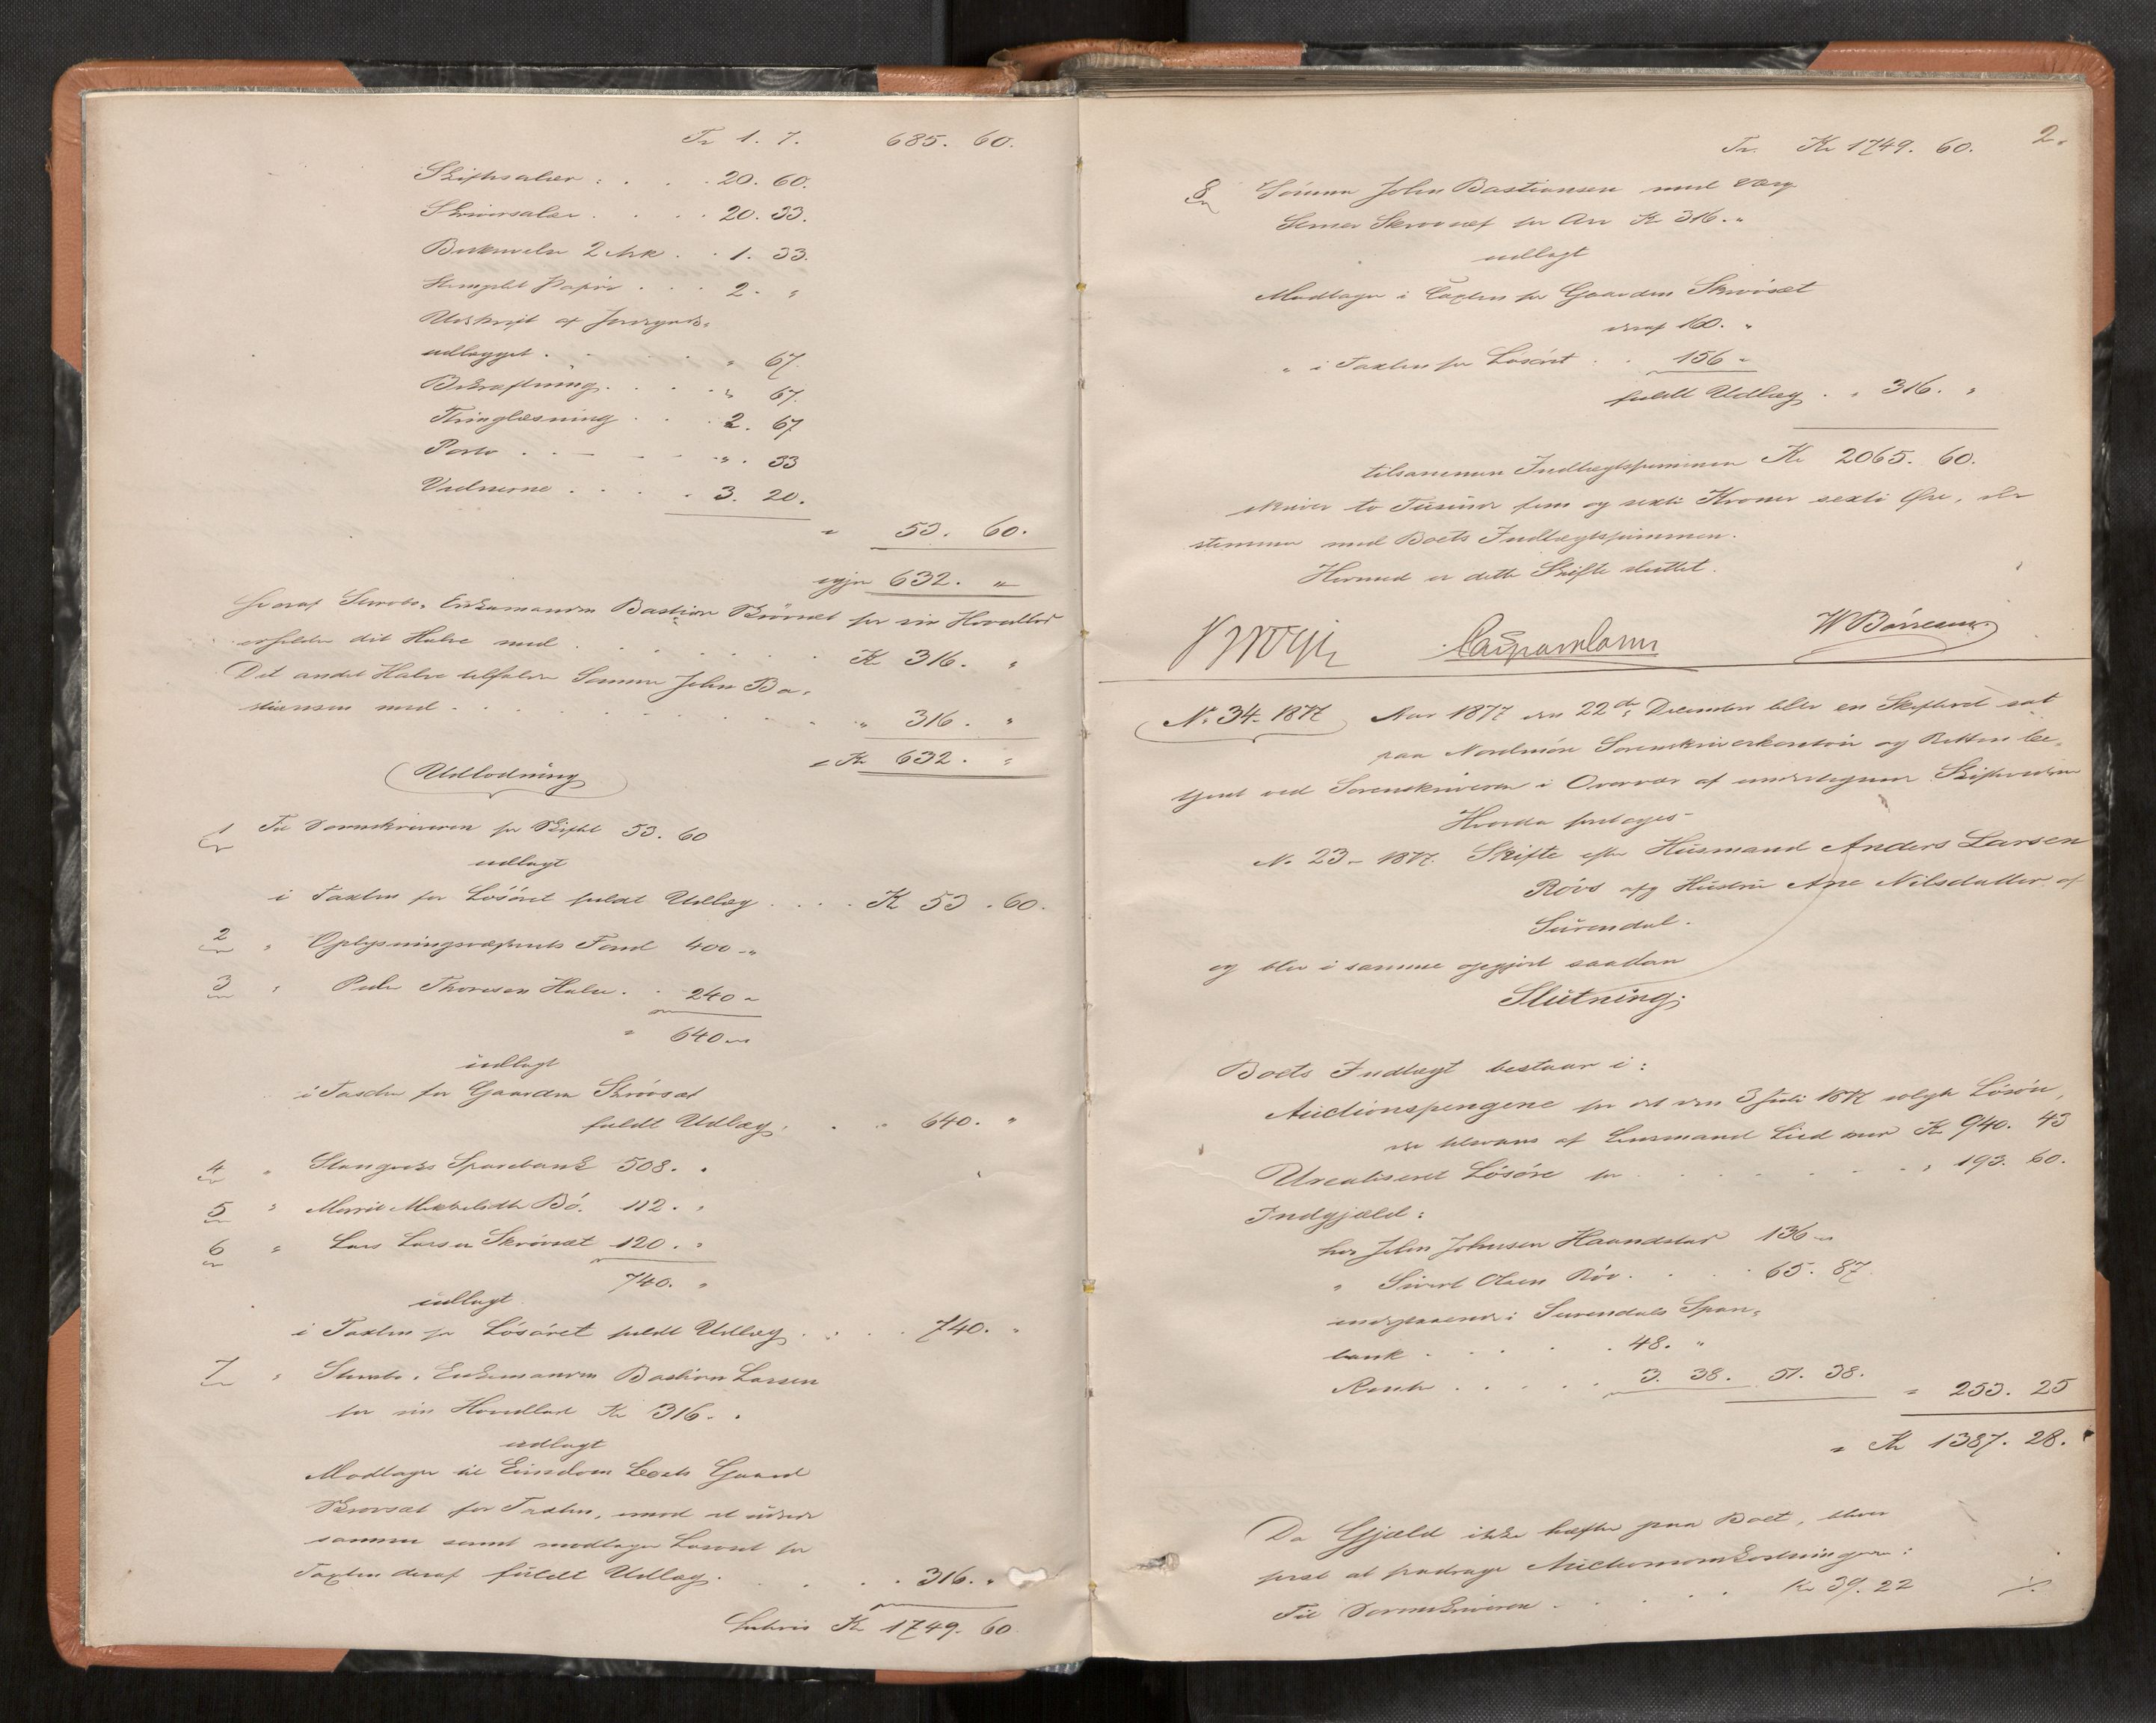 Tr 1. 7. 685. 60.
Skiftesalær . . . 20. 60.
Skriversalær . . . 20. 33.
Beskrivelse 2 Ark . . 1. 33.
Stemplet Papir . . . 2. "
Udskrift af Jordgods-
udlægget . . . " 67.
Bekræftning . . . " 67.
Thinglæsning . . 2. 67
Porto . . . " . 33
Vidnerne . . . 3. 20.
" 53. 60.
igjen 632. "
hvoraf Enkemanden Bastian Skrövset for sin Hovedlod
erholder det Halve med . . . Kr 316. "
Det andet Halve tilfalder Sönnen John Ba-
stiansen med . . . " 316. "
= Kr 632. "
Udlodning
1 Til Sorenskriveren for Skiftet 53. 60
udlagt
i Taxten for Lösöret fuldt Udlæg . . . Kr 53. 60.
2 " Oplysningsvæsenets Fond 400 "
3 " Peder Thoresen Halse . . 240 "
" 640 "
udlagt
i Taxten for Gaarden Skrövset
fuldt Udlæg . . . 640. "
4 " Stangvik Sparebank 508. "
5 " Marit Mikkelsdtr Bö. 112. "
6 " Lars Larsen Skrövset 120. "
740. "
udlagt
i Taxten for Lösöret fuldt Udlæg . . . 740. "
7 " Enkemanden Bastian Larsen
for sin Hovedlod Kr 316. "
udlagt
Modtager til Eiendom Boets Gaard
Skrovset for Taxten, imod at udrede
samme samt modtager Lösöret for
Taxten deraf fuldt Udlæg . . . 316. "
Lateris Kr 1749. 60
2.
Tr. Kr 1749. 60.
8 Sönnen John Bastiansen med Værge
Skrovset for Arv Kr 316. "
udlagt
Modtager i Taxten for Gaarden Skrövset
deraf 160. "
" i Taxten for Lösöret . . 156 "
fuldt Udlæg . " 316. "
tilsammen Indtægtssummen Kr 2065. 60.
skriver to Tusinde fem og sexti Kroner sexti Øre, der
stemmer med Boets Indtægtssummen.
Hermed er dette Skifte sluttet.
W Börresen
No 34-1877 Aar 1877 den 22de December blev en Skifteret sat
paa Nordmöre Sorenskriverkontoir og Retten be-
tjent ved Sorenskriveren i Overvær af undertegnede Skiftevidner
Hvorda foretoges
No 23-1877. Skifte efter Husmand Anders Larsen
Röv og Hustru Ane Nilsdatter af
Surendal.
og blev i samme opgjort saadan
Slutning:
Boets Indtægt bestaar i:
Auctionspengene for det den 3 Juli 1877 solgte Lösöre,
der tilsvares af Lensmand Lied med Kr 940. 43
Urealiseret Lösöre for . . . " 193. 60.
Indgjæld:
hos John Johnsen Haandstad 136 "
" Sivert Olsen Röv . . . 65. 87.
indestaaende i Surendals Spare-
bank . . . 48. "
Rente . . . 3. 38. 51. 38.
= 253. 25
= Kr 1387. 28.
Da Gjæld ikke hæfter paa Boet, bliver
först at fradrage Auctionsomkostningerne:
Til Sorenskriveren . . . Kr 39. 22